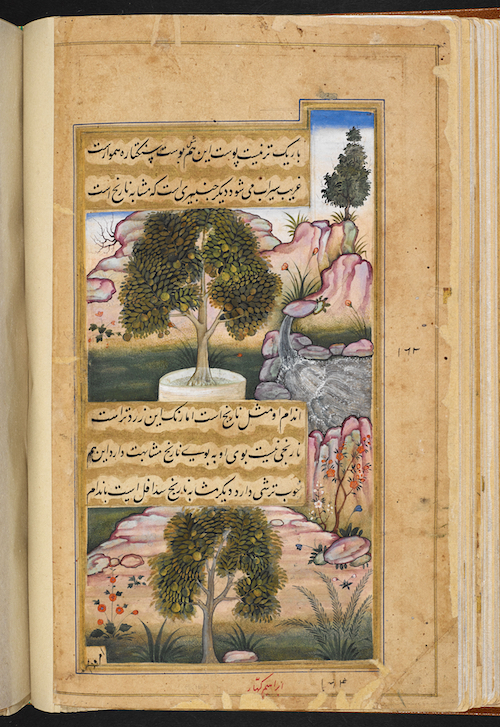 باریک تر نیست پوست این هم پوست پنکتاره هموار است
غریب سیراب می شود دیگر جنبهیری است که مشابه نارنج است
۱۶۲
اندام او مثل نارنج است اما رنگ این زردتر است
نارنجی نیست بوی او به بوی نارنج مشابهت دارد این هم
خوب ترشی دارد دیگر مشابه نارنج سدافل است باندام
ابراهیم کهار
۱۶۴